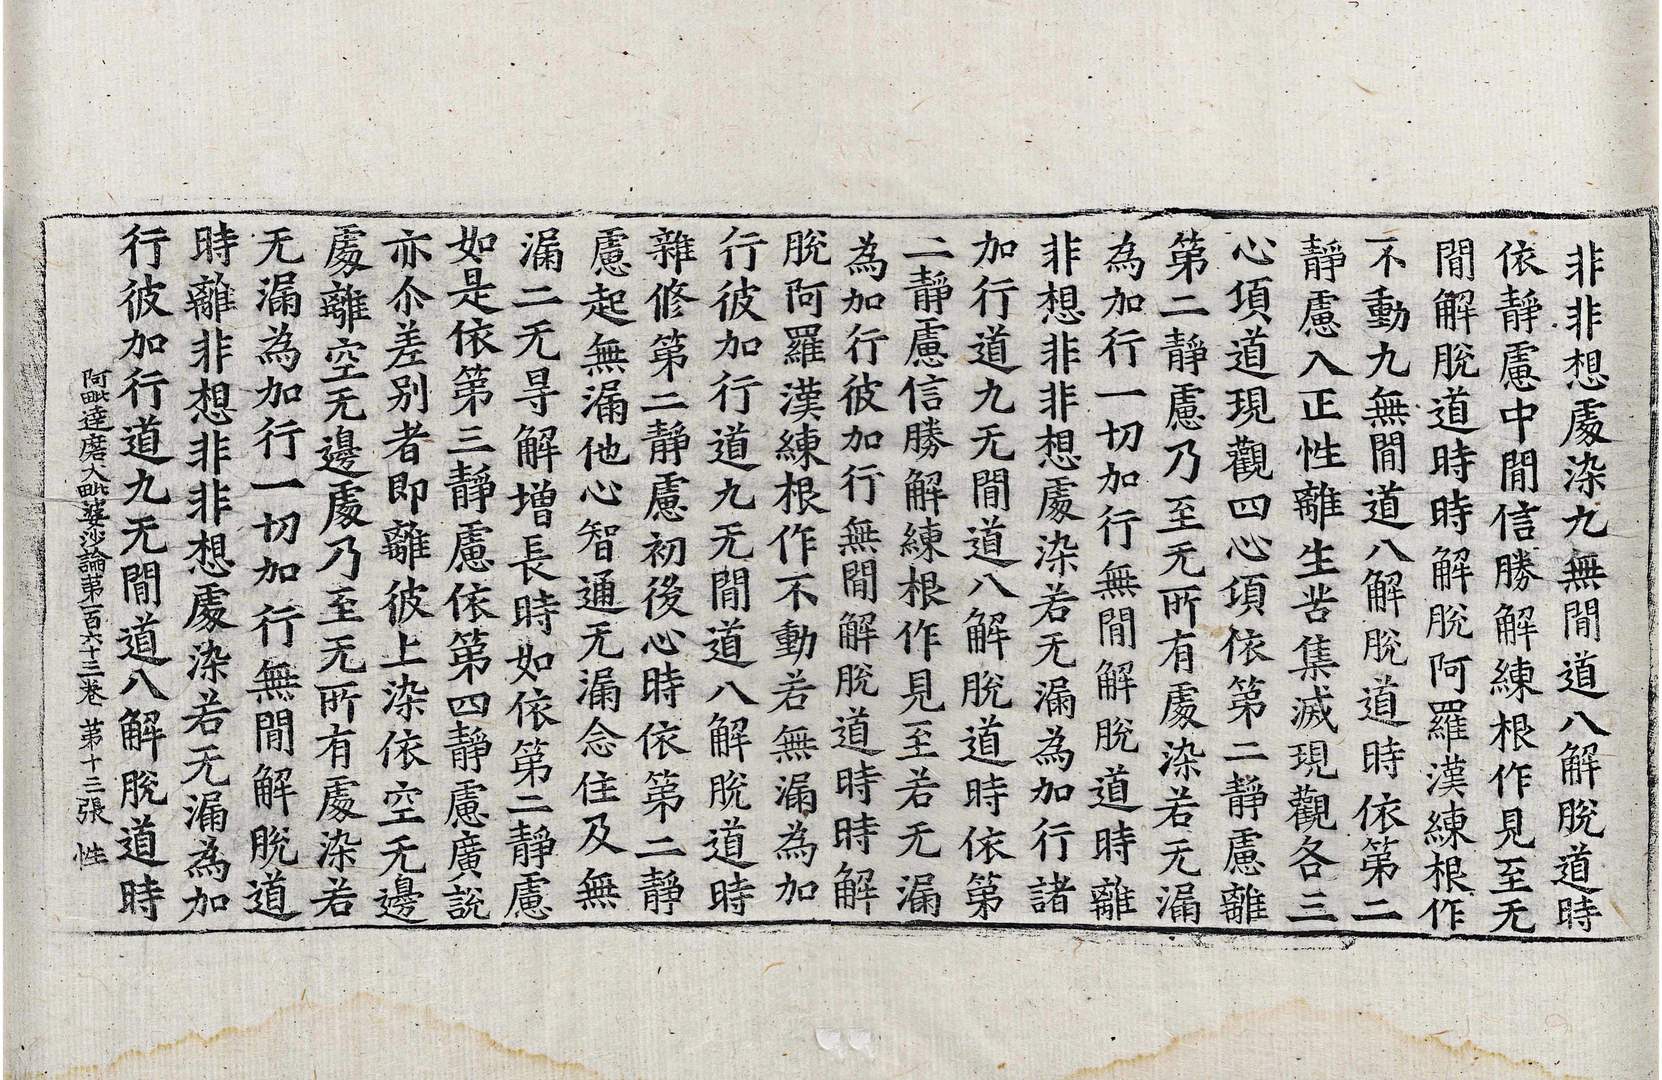 非非想處染九無間道八解脫道時
依靜慮中間信勝解練根作見至无
間解脫道時時解脫阿羅漢練根作
不動九無間道八解脫道時依第二
靜慮入正性離生苦集滅現觀各三
心頃道現觀四心頃依第二靜慮離
第二靜慮乃至无所有處染若无漏
為加行一切加行無間解脫道時離
非想非非想處染若无漏為加行諸
加行道九无間道八解脫道時依第
二靜慮信勝解練根作見至若无漏
為加行彼加行無間解脫道時時解
脫阿羅漢練根作不動若無漏為加
行彼加行道九无間道八解脫道時
雜修第二靜慮初後心時依第二靜
慮起無漏他心智通无漏念住及無
漏二无㝵解增長時如依第二靜慮
如是依第三靜慮依第四靜慮廣說
亦尒差別者即離彼上染依空无邊
處離空无邊處乃至无所有處染若
无漏為加行一切加行無間解脫道
時離非想非非想處染若无漏為加
行彼加行道九无間道八解脫道時
阿毗達磨大毗婆沙論第一百六十三卷 第十三張 性